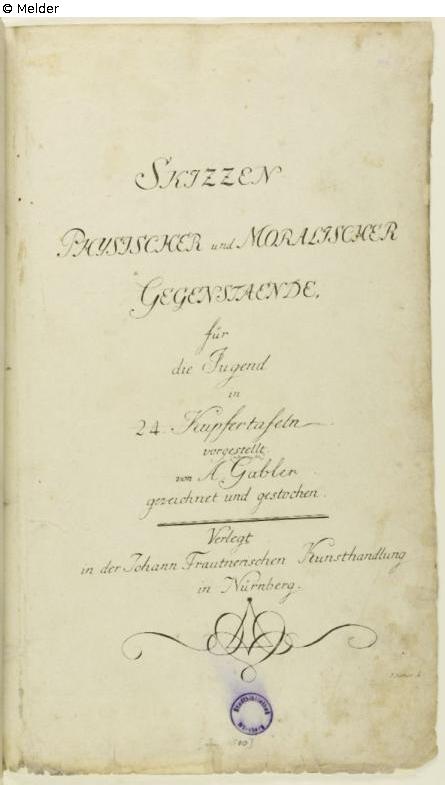 © Melder
SKIZZEN
PHYSISCHER und MORALISCHER
GEGENSTAENDE,
für
die Jugend
in
24. Kupfertafeln
vorgestellt
von A Gabler
gezeichnet und gestochen.
Verlegt
in der Johann Trautnerischen Kunsthandlung
in Nürnberg.